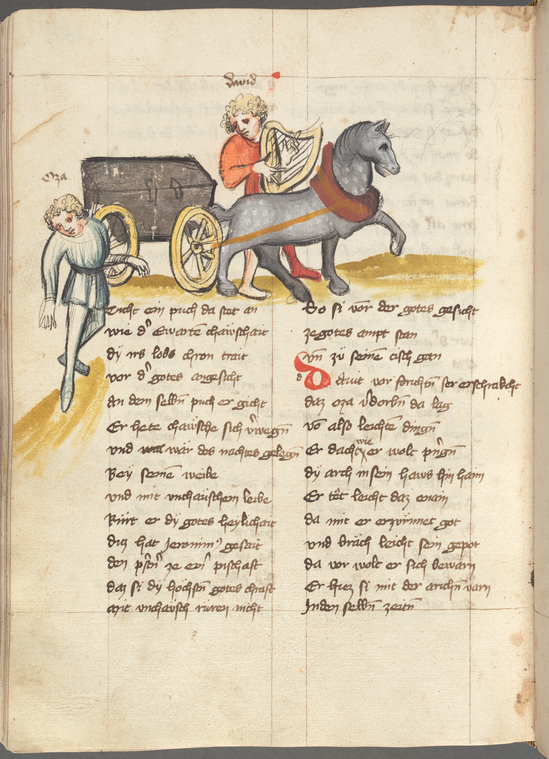 david
Oza
Ticht ein puch da stet an
wie d' Ewarte chäwschait
dy irs lobs chron trait
vor d' gotes angesicht
An dem selbn̄ puch er gicht
Er hete chäwsche sich v'wegn̄
und wär des nachtes gelegn̄
Bey seinē weibe
und mit vnchäwschem leibe
Rürt er dy gotes heylichait
diz hat Jeronim' gesait
den pfin̄ ze ein' pischaft
daz si dy höchstn̄ gotes chraft
mit vnchäwsch rüren nicht
Do si vor der gotes gesicht
ze gotes ampt sten
vn̄ zü seinē tisch gen
Dauit vor förchtn̄ ser erschrakcht
daz oza v'dorbn̄ da lag
vō also leichtē dingn̄
Er dacht wie er wolt pringn̄
dy arch in sein haws hin haim
Er tët leicht daz ain
da mit er erzürnnet got
und bräch leicht sein gepot
da vor wolt er sich bewarn
Er hiez si mit der archn̄ varn
In den selbn̄ zeitn̄